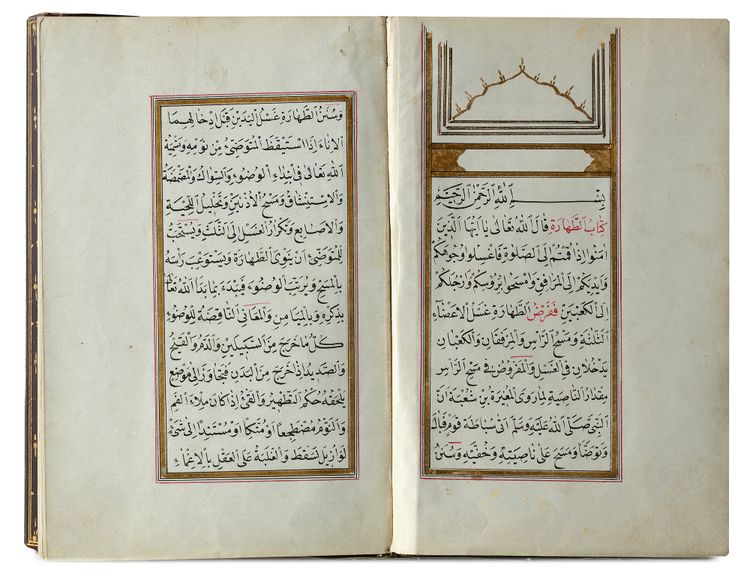 بسم الله الرحمن الرحيم
كتاب الطهارة قال الله تعالى يا ايها الذين
امنوا اذا قمتم الى الصلوة فاغسلوا وجوهكم
وايديكم الى المرافق وامسحوا برؤسكم وارجلكم
الى الكعبين ففرض الطهارة غسل الاعضاء
الثلثة ومسح الراس والمرفقان والكعبان
يدخلان في الغسل والمفروض في مسح الراس
مقدار الناصية لما روى المغيرة بن شعبة ان
النبي صلى الله عليه وسلم اتى سباطة قوم فبال
وتوضأ ومسح على ناصيته وخفيه وسنن
وسنن الطهارة غسل اليدين قبل ادخالهما
الاناء اذا استيقظ المتوضئ من نومه وتسمية
الله تعالى في ابتداء الوضوء والسواك والمضمضة
والاستنشاق ومسح الاذنين وتخليل اللحية
والاصابع وتكرار الغسل الى الثلث ويستحب
للمتوضئ ان ينوى الطهارة ويستوعب راسه
بالمسح ويرتب الوضوء فيبدء بما بدا الله تعالى
بذكره وبالميامن والمعاني الناقضة للوضوء
كل ما خرج من السبيلين والدم والقيح
والصديد اذا خرج من البدن فتجاوز الى موضع
يلحقه حكم التطهير والقئ اذا كان ملاء الفم
والنوم مضطجعا او متكئا او مستندا الى شئ
لو ازيل لسقط والغلبة على العقل بالاغماء